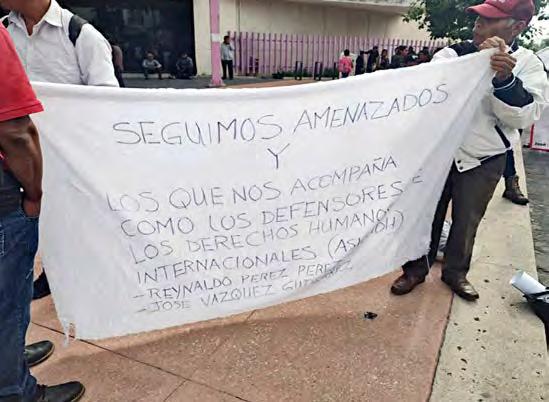 SEGUIMOS AMENAZADOS
Y
LOS QUE NOS ACOMPAÑA
COMO LOS DEFENSORES
LOS DERECHOS HUMANO
INTERNACIONALES
-REYNALDO PEREZ
-JOSE VAZQUEZ